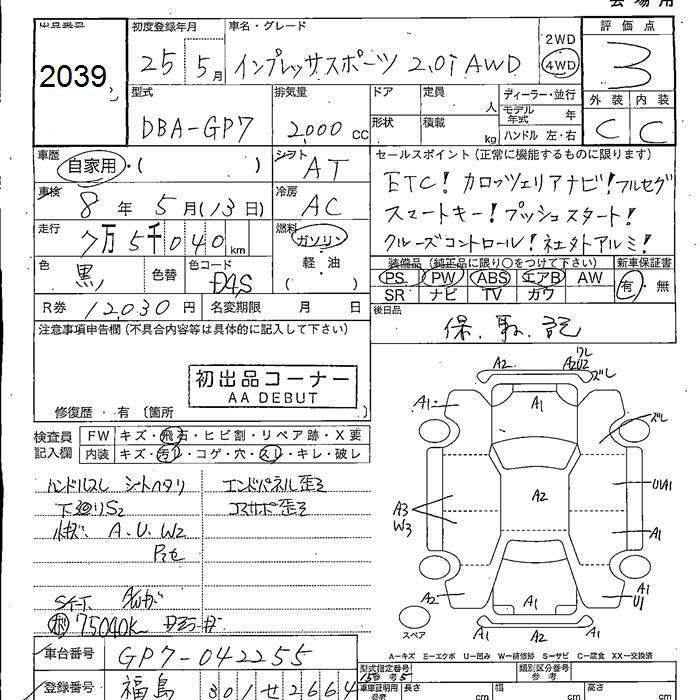 会場用
出品番号 初度登録年月 車名・グレード 2WD 評価点
2039 25 5月 インプレッサスポーツ 2.0i AWD 4WD 3
型式 排気量 ドア 定員 人 ディーラー・並行 外装 内装
DBA-GP7 2,000 cc 形状 積載 kg モデル年式 年 C C
ハンドル 左・右
車歴 自家用・( ) シフト AT セールスポイント(正常に機能するものに限ります)
車検 8年5月(13日) 冷房 AC ETC! カロッツェリアナビ! フルセグ
走行 7万5千040km 燃料 ガソリン スマートキー! プッシュスタート!
軽・油 クルーズコントロール! 社外アルミ!
色 黒 色替 色コード D4S ( )
装備品(純正品に限り○をつけて下さい) 新車保証書
PS PW ABS エアB AW 有・無
SR ナビ TV カワ
R券 12,030円 名変期限 月 日 後日品
注意事項申告欄(不具合内容等は具体的に記入して下さい) 保、取、記
初出品コーナー
AA DEBUT
修復歴・有 [箇所 ]
検査員 FW キズ・飛石・ヒビ割・リペア跡・X要
記入欄 内装 キズ・汚レ・コゲ・穴・スレ・キレ・破レ
ハンドルスレ シートヘタリ エンドパネル歪ミ
下廻りS2 コアサポ歪ミ
A.U.W2
75040K
車台番号 GP7-042255
登録番号 福島 301 せ 2664
A2 A2U2 ワレ ズレ
A1 A1 ズレ
A3 W3 A2 U1A1
A1
A2 A1 A1 U1
A1 A2 A1
スペア
A−キズ E−エクボ U−凹み W−補修跡 S−サビ C−腐食 XX−交換済
型式指定番号 類別区分番号
15参考5 参考
車庫証明用 長さ cm 幅 cm 高さ cm